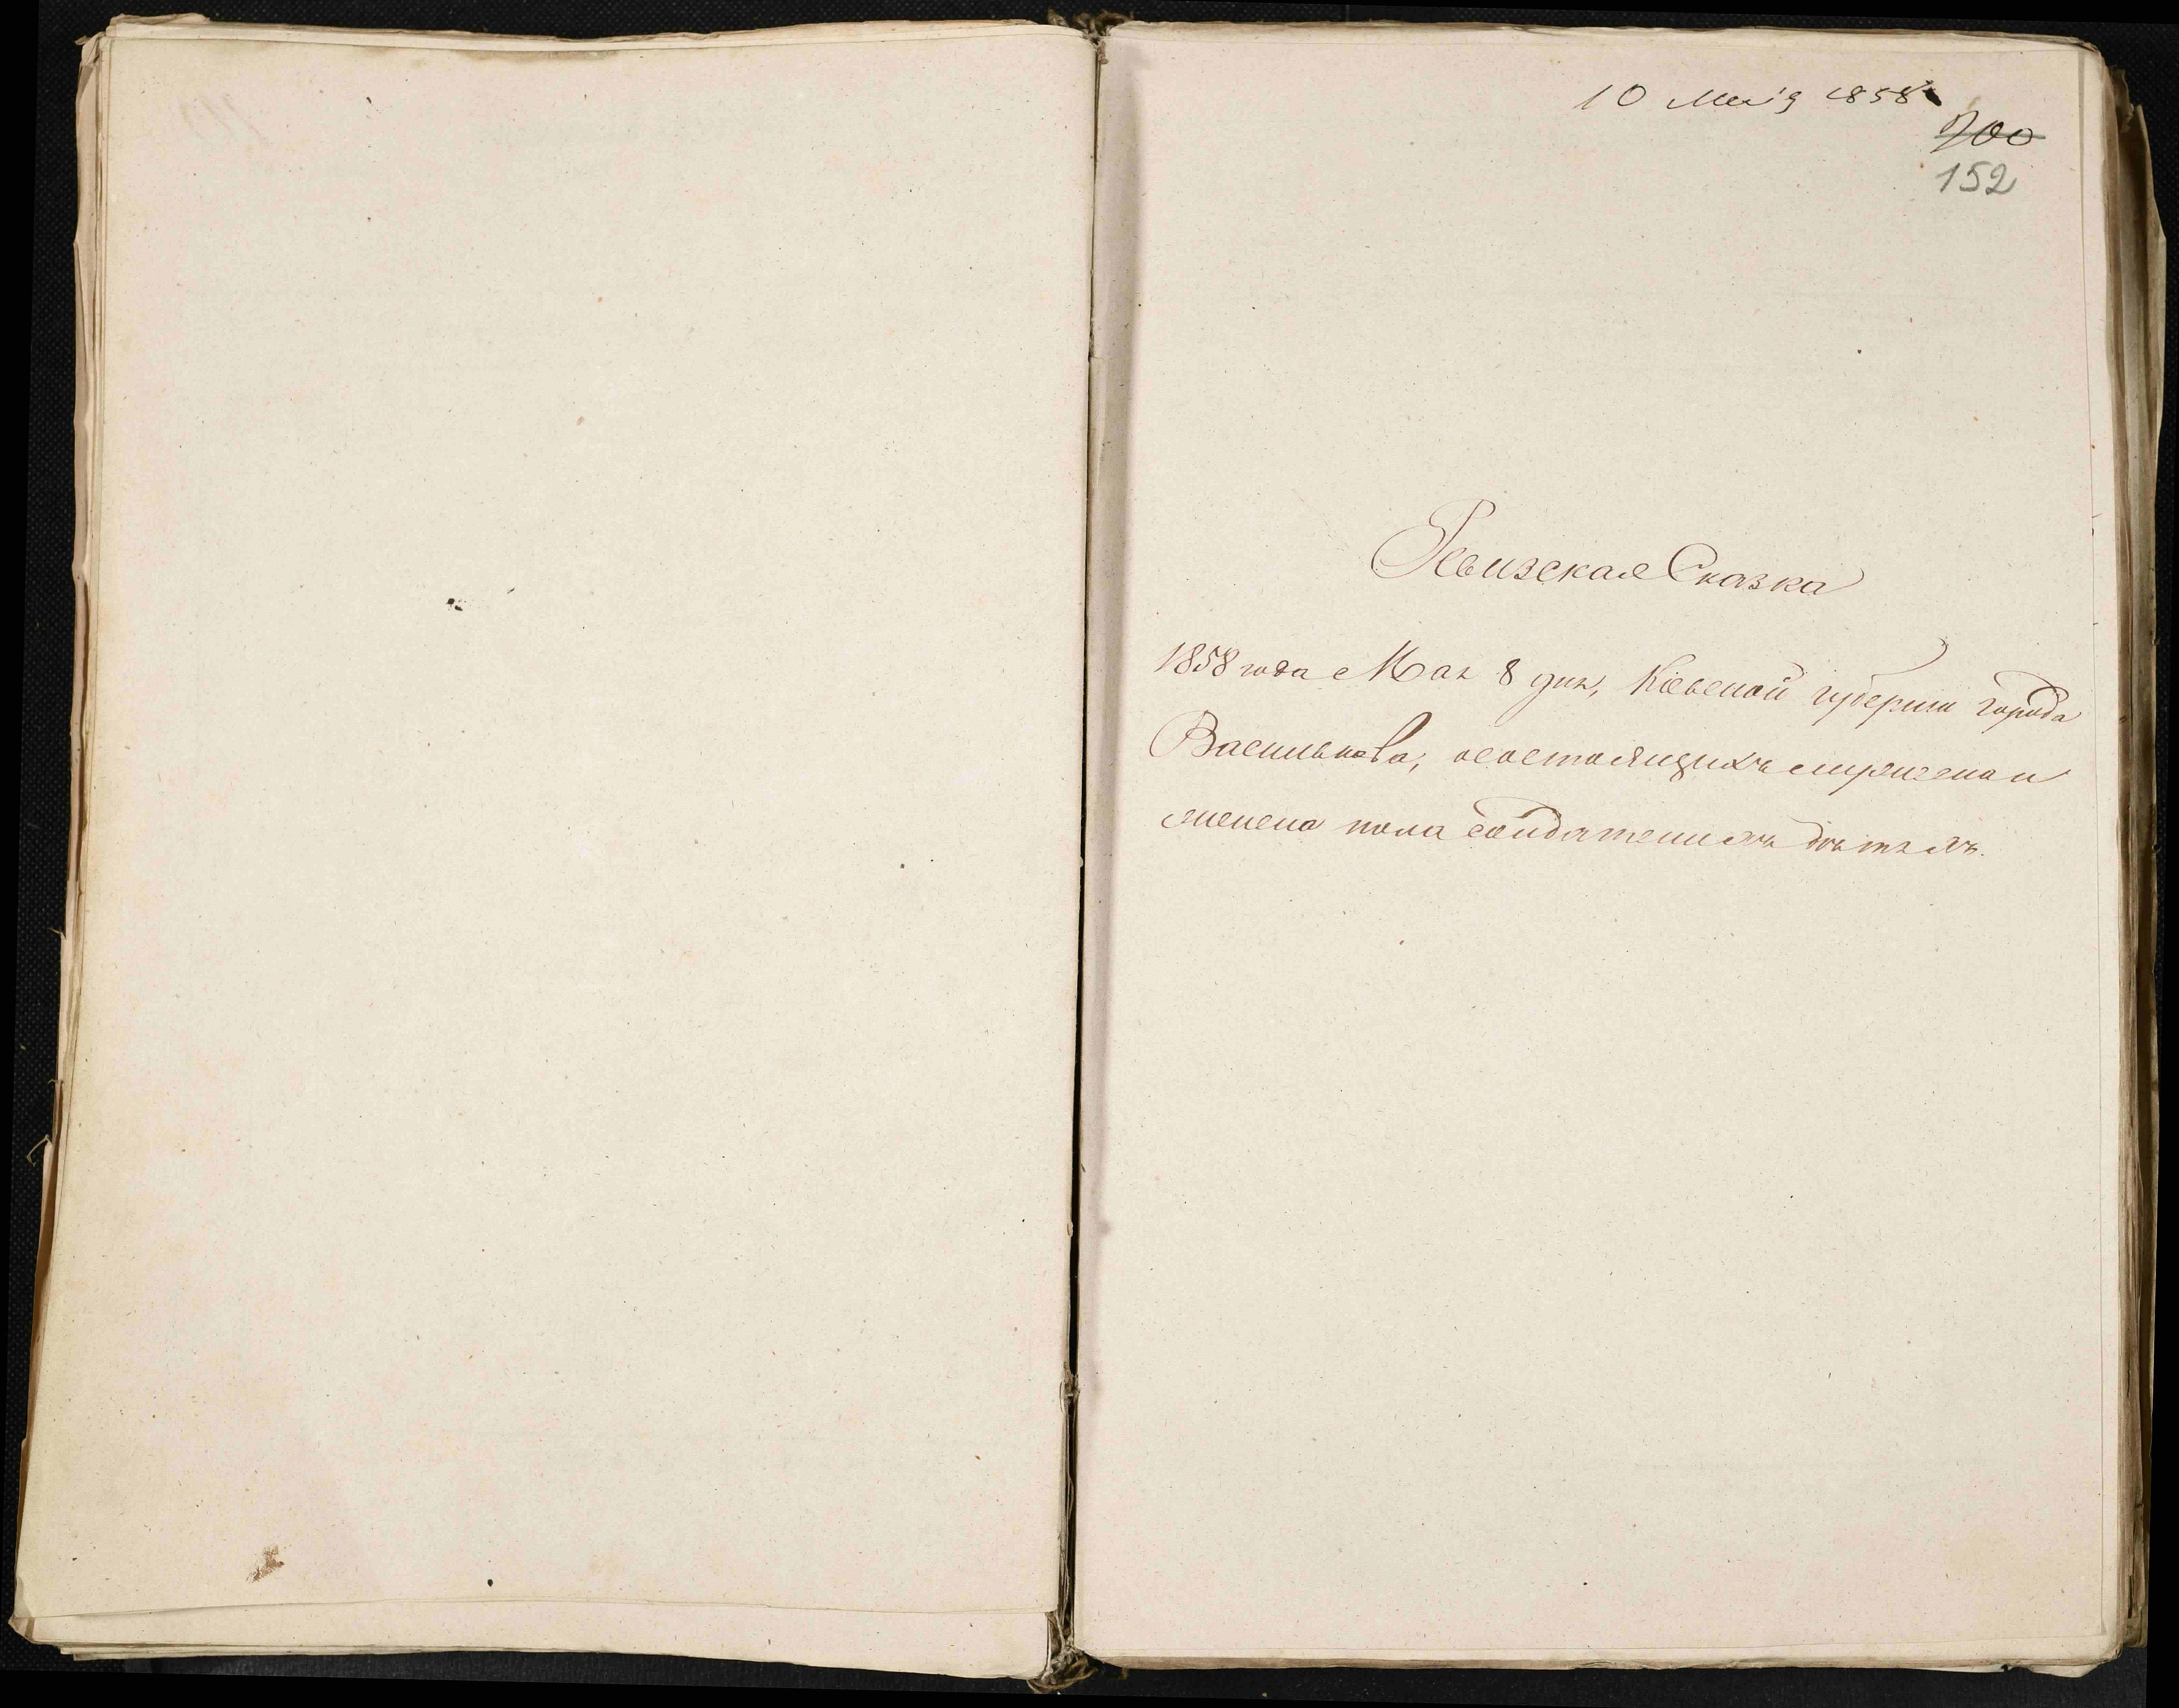 10 Маія 1858
700
152
Ревизская Сказка
1858 года Мая 8 дня, Кіевской губерніи города
Василькова, о состоящихъ мужеска и
женска пола солдатскихъ дѣтяхъ.